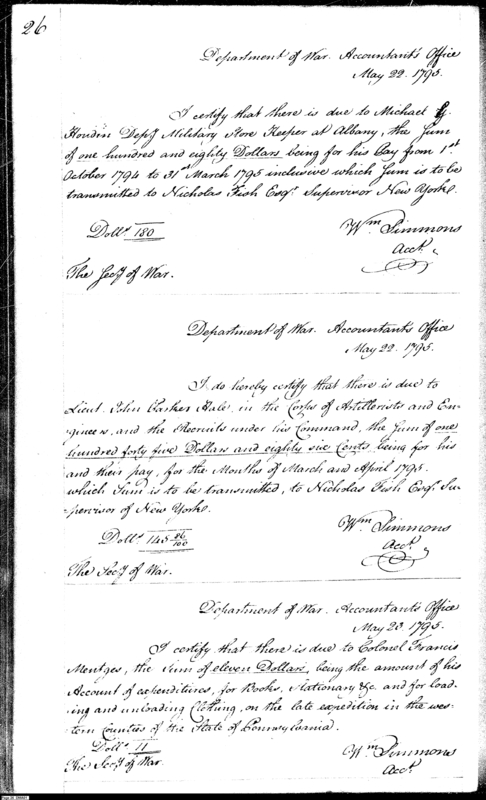 26
Department of War. Accountant's Office
May 22. 1795.
I certify that there is due to Michael G.
Houdin Depy Military Store Keeper at Albany, the Sum
of one hundred and eighty Dollars being for his Pay from 1st
October 1794 to 31st March 1795 inclusive which Sum is to be
transmitted to Nicholas Fish Esqr. Supervisor New York.
Dolls 180
Wm. Simmons
Acct.
The Secy of War.
Department of War. Accountant's Office
May 22. 1795.
I do hereby certify that there is due to
Lieut. John Parker Hale, in the Corps of Artillerists and En-
gineers, and the Recruits under his Command, the Sum of one
hundred forty five Dollars and eighty six Cents, being for his
and their pay, for the Months of March and April 1795.
which Sum is to be transmitted, to Nicholas Fish Esqr. Su-
pervisor of New York.
Dolls 145 86/100
Wm. Simmons
Acct.
The Secy of War.
Department of War. Accountant's Office
May 23. 1795.
I certify that there is due to Colonel Francis
Mentges, the Sum of eleven Dollars, being the amount of his
Account of expenditures, for Books, Stationary &c. and for load-
ing and unloading Clothing, on the late expedition in the wes-
tern Counties of the State of Pennsylvania.
Dolls 11
Wm. Simmons
Acct.
The Secy of War.